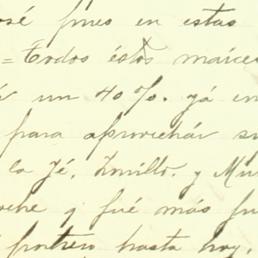 José pues en estas
= Todos éstos maíces
un 40%. yá en
para aprovechár su
la Jé, Zorillo. y Mu
oche y fué más fu
potrero hasta hoy.